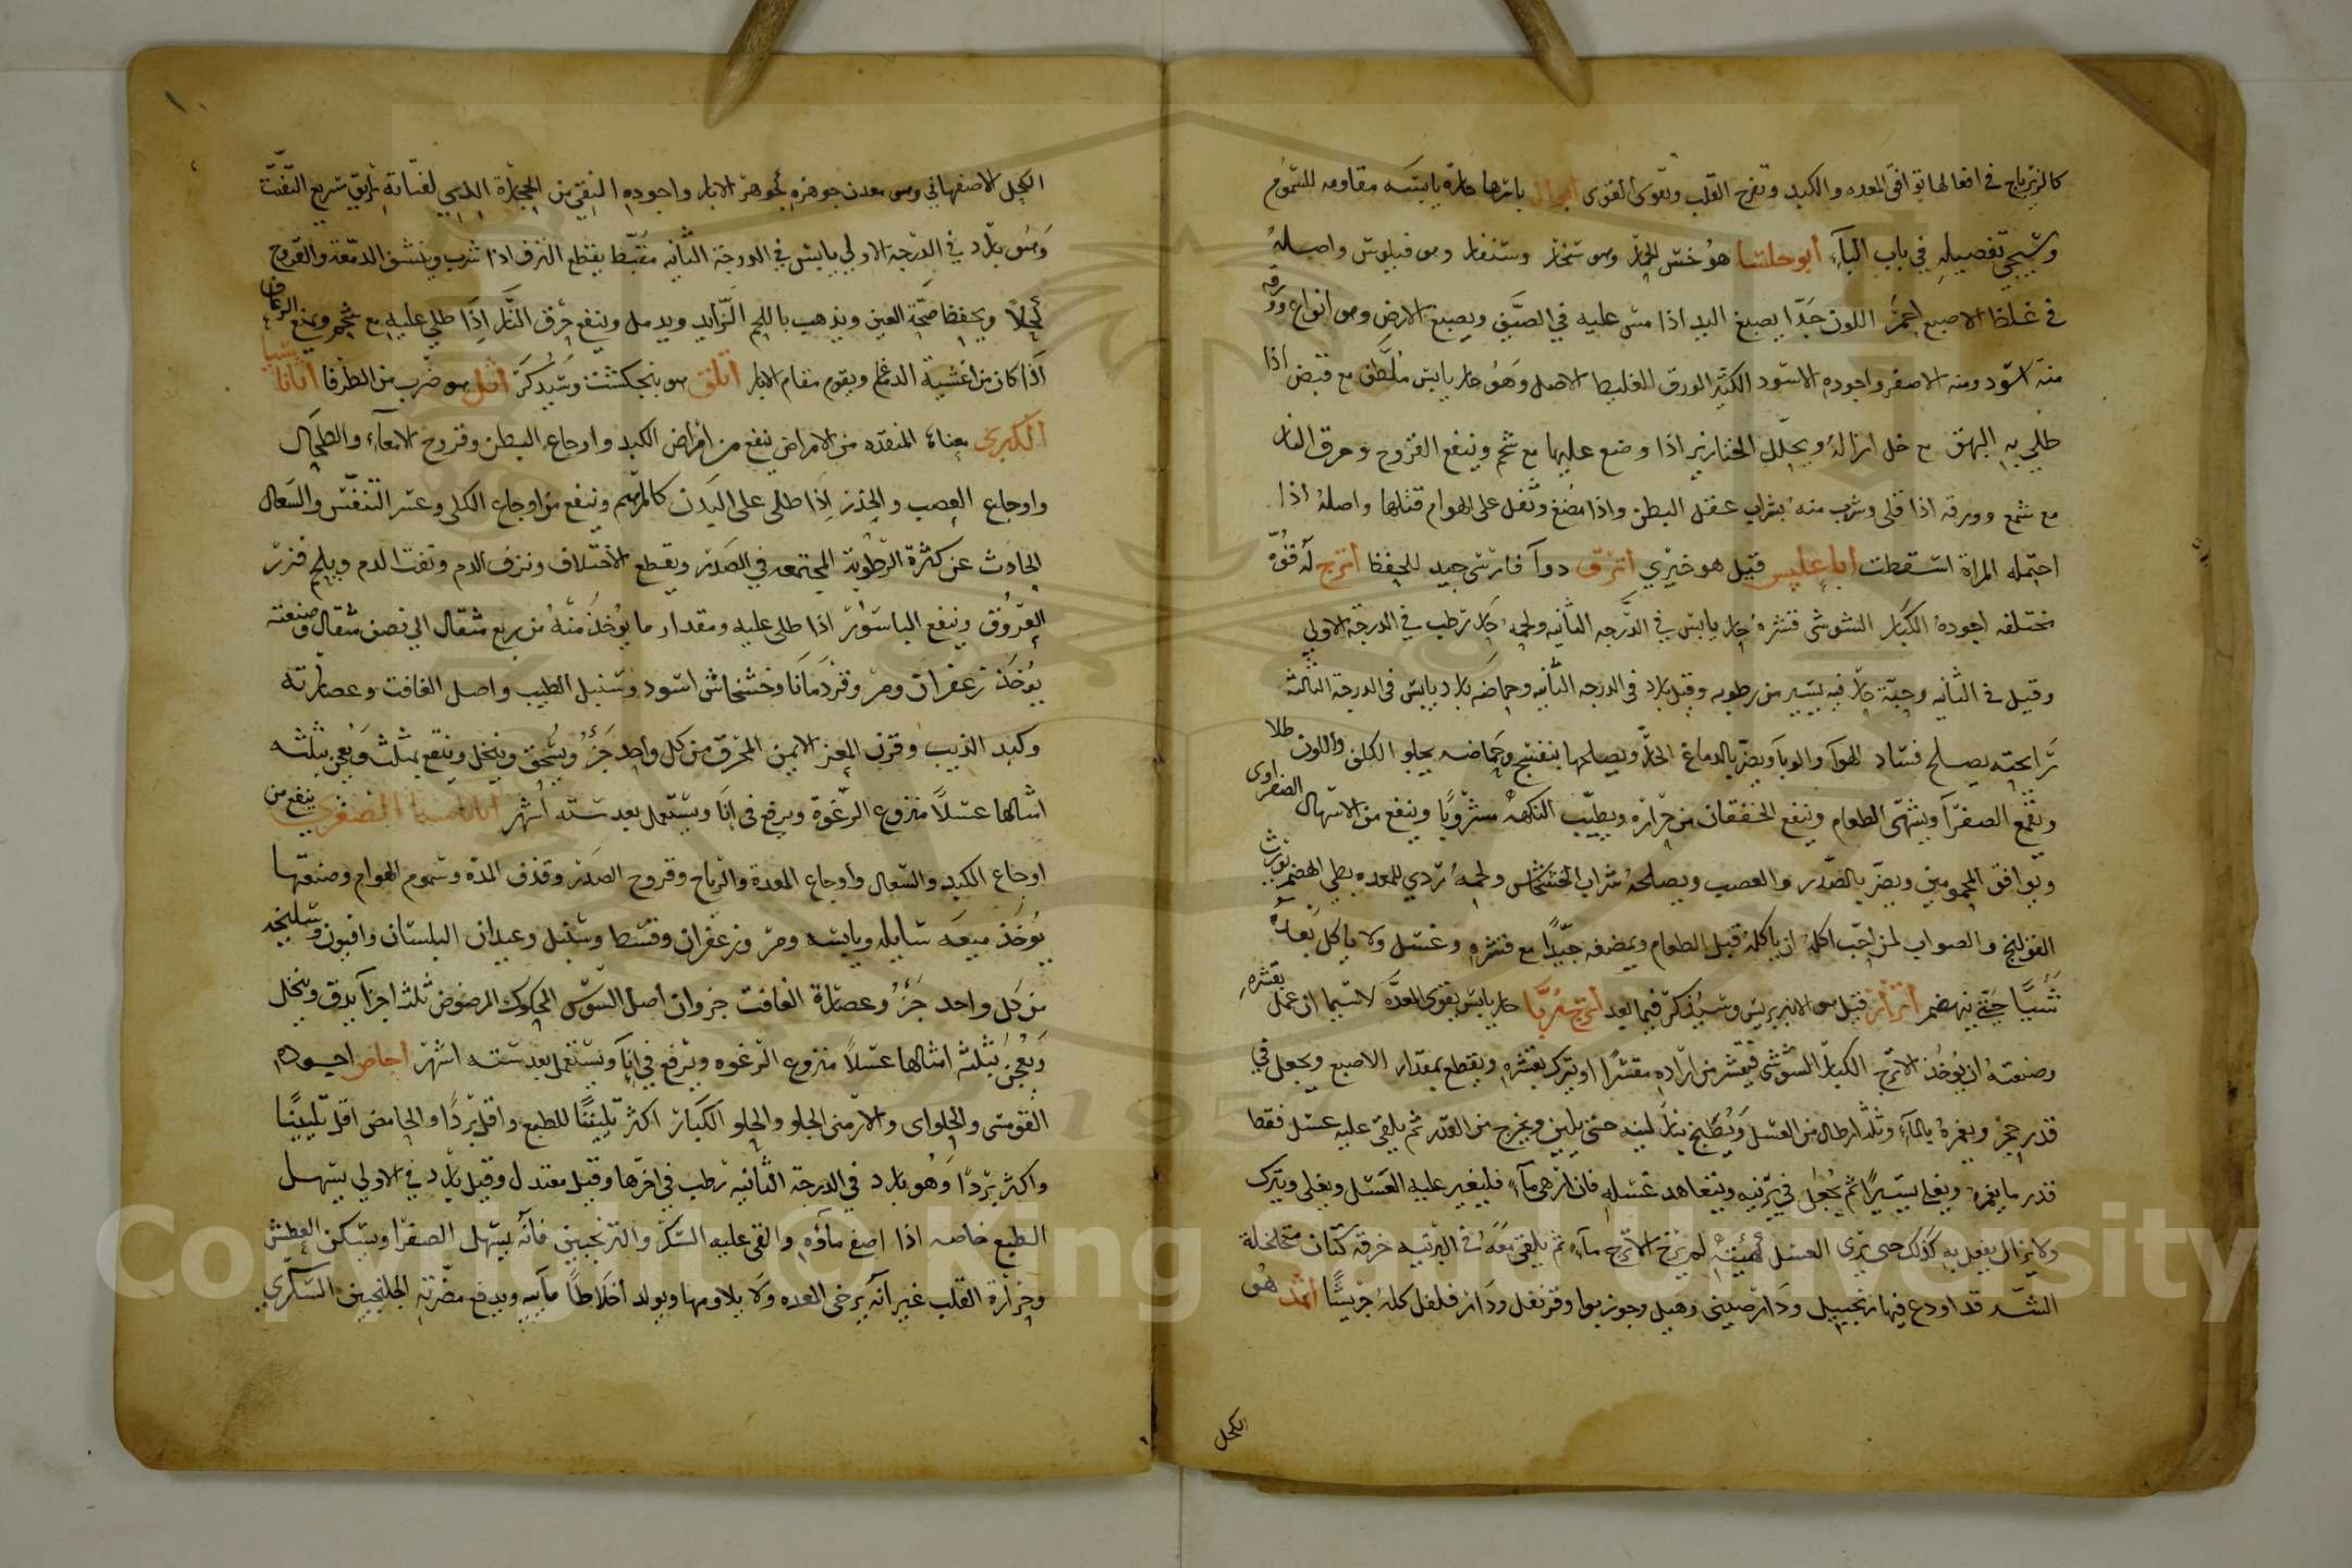 كالزرنباج في افعالها توافق المعده والكبد وتفرح القلب وتقوى القوى بأسرها حارة يابسة مقاومه للسموم
وسيجي تفصيله في باب البآء أبو حلسا هو خس الحمار وهو شنجار وشنقار وهو فيلوس واصله
في غلظ الاصبع احمر اللون جدا يصبغ اليد اذا مس عليه في الصيف ويصبغ الارض وهو انواع ورقه
منه اسود ومنه الاصفر واجوده الاسود الكثير الورق الغليظ الاصل وهو حار يابس ملطف مع قبض اذا
طلي به البهق مع خل ازاله ويحلل الخنازير اذا وضع عليها مع شحم وينفع القروح وحرق النار
مع شمع وورقه اذا قلى وشرب منه بشراب عقل البطن واذا مضغ وتفل على الهوام قتلها واصله اذا
احتمله المراة اسقطت قيل هو خيري أترق دوآ فارسى جيد للحفظ أترج له قوة
مختلفه اجوده الكبار السوسى قشره حار يابس في الدرجه الثانيه ولحمه حار رطب في الدرجة الاولي
وقيل في الثانيه وحبه حار فيه يسير من رطوبه وقيل بارد فى الدرجه الثانيه وحماضه بارد يابس فى الدرجة الثالثة
رايحته يصلح فساد الهوآ والوبآ ويضر بالدماغ الحار ويصلحها بنفسج وحماضه يجلو الكلف واللون طلا
ويقمع الصفرآ ويشهى الطعام وينفع الخفقان من حراره ويطيب النكهه مشروبا وينفع من الاسهال الصفراوى
ويوافق المحمومين ويضر بالصدر والعصب ويصلحه شراب الخشخاش ولحمه ردي للمعده بطي الهضم يورث
القولنج والصواب لمن احب اكله ان ياكله قبل الطعام ويمضغه جيدا مع قشره وعسل ولا ياكل بعده
شيا حتى ينهضم أترار قيل هو الانبرباريس وسيذكر فيما بعد أترج مربا حار يابس يقوى المعدة لاسيما ان عمل بقشره
وصنعته ان يوخذ الاترج الكبار السوسى فيقشر من اراده مقشرا او يترك بقشره ويقطع بمقدار الاصبع ويجعل في
قدر حجر ويغمره بالمآء وثلثه ارطال من العسل ويطبخ بنار لينه حتى يلين ويخرج من القدر ثم يلقى عليه عسل فقط
قدر ما يغمره ويغلى يسيرا ثم يجعل في برنيه ويتعاهد عسله فان ازهى مآء فليغير عليه العسل ويغلى ويترك
ولا يزال يفعل به كذلك حتى يرى العسل لم يرخ الاترج مآء ثم يلقى معه في البرنيه خرقة كتان متخلخلة
الشد قد اودع فيها زنجبيل ودار صينى وهيل وجوز بوا وقرنفل ودار فلفل كله جريشا أثمد هو
الكحل
الكحل الاصفهاني وهو معدن جوهره كجوهر الابار واجوده النقي من الحجارة الذي لفتاته بريق سريع التفتت
وهو بارد في الدرجة الاولي يابس في الدرجة الثانيه مقبط يقطع النزف اذا شرب وينشف الدمعة والقروح
كحلا ويحفظ صحة العين ويذهب باللحم الزايد ويدمل وينفع حرق النار اذا طلي عليه مع شحم ويمنع الرعاف
اذا كان من اغشية الدماغ ويقوم مقام الابار أثلق هو بنجنكشت وسيذكر أثل هو ضرب من الطرفا أثاناسيا
الكبرى معناه المنقده من الامراض ينفع من امراض الكبد واوجاع البطن وقروح الامعآء والطحال
واوجاع العصب والخدر اذا طلى على البدن كالمرهم وينفع من اوجاع الكلى وعسر التنفس والسعال
الحادث عن كثرة الرطوبة المجتمعه في الصدر ويقطع الاختلاف ونزف الدم ونفث الدم ويلحم فزر
العروق وينفع الباسور اذا طلى عليه ومقدار ما يوخذ منه من ربع مثقال الي نصف مثقال وصنعته
يوخذ زعفران ومر وقردمانا وخشخاش اسود وسنبل الطيب واصل الغافت وعصارته
وكبد الذيب وقرن المعز الايمن المحرق من كل واحد جزء ويسحق وينخل وينقع بمثلث ويعجن بثلثه
امثالها عسلا منزوع الرغوة ويرفع فى انا ويستعمل بعد سته اشهر أثاناسيا الصغرى ينفع من
اوجاع الكبد والسعال وأوجاع المعدة والرياح وقروح الصدر وقذف المدة وسموم الهوام وصنعتها
يوخذ ميعه سايله ويابسه ومر وزعفران وقسط وسنبل وعيدان البلسان وافيون وسليخه
من كل واحد جزء وعصارة الغافت جزوان اصل السوس المحكوك المرضوض ثلثة اجزآ يدق وينخل
ويعجن بثلثة امثالها عسلا منزوع الرغوه ويرفع في انآ ويستعمل بعد سته اشهر أجاص اجوده
القومسى والحلواى والارمنى الحلو والحلو الكبار اكثر تليينا للطبع واقل بردا والحامض اقل تليينا
واكثر بردا وهو بارد في الدرجة الثانيه رطب في اخرها وقيل معتدل وقيل بارد في الاولي يسهل
الطبع خاصه اذا اصفى مآؤه والقى عليه السكر والترنجبين فانه يسهل الصفرا ويسكن العطش
وحرارة القلب غير انه يرخى المعده ولا يلاومها ويولد اخلاطا مآئيه ويدفع مضرته الجلنجبين السكري